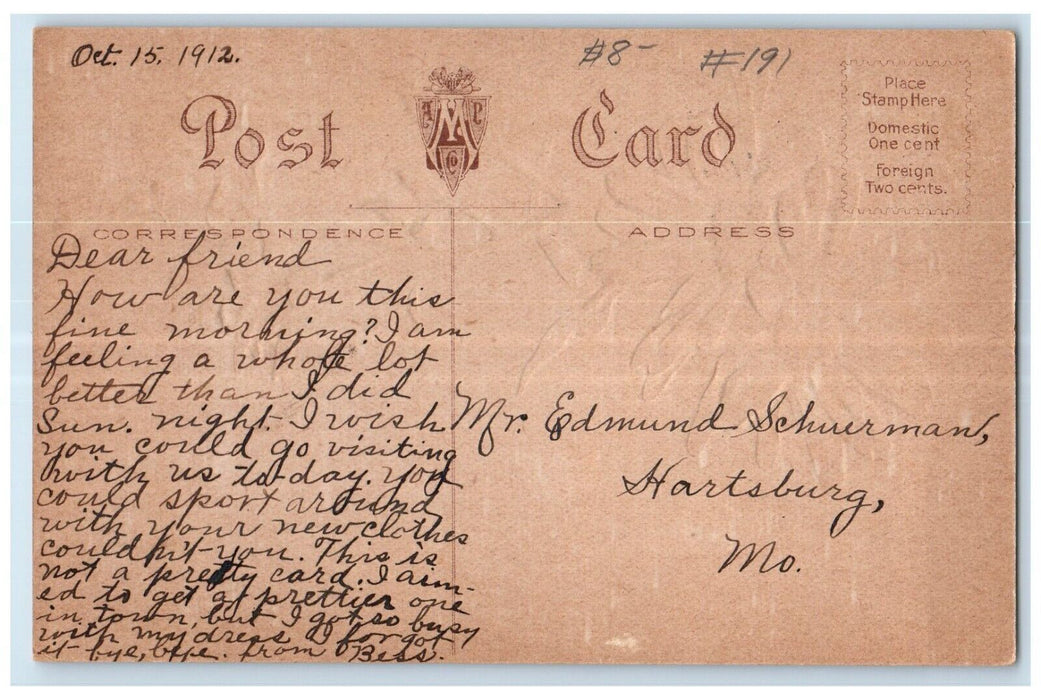 Oct. 15. 1912.
#8-
#191
Post Card
A M P
Co
Place
Stamp Here
Domestic
One cent
Foreign
Two cents.
CORRESPONDENCE
ADDRESS
Dear friend
How are you this
fine morning? I am
feeling a whole lot
better than I did
Sun. night. I wish
you could go visiting
with us to-day. You
could sport around
with your new clothes
couldn't you. This is
not a pretty card. I aim-
ed to get a prettier one
in town, but I got so busy
with my dress I forgot
it bye, bye. from Bess.
Mr. Edmund Schuerman,
Hartsburg,
Mo.